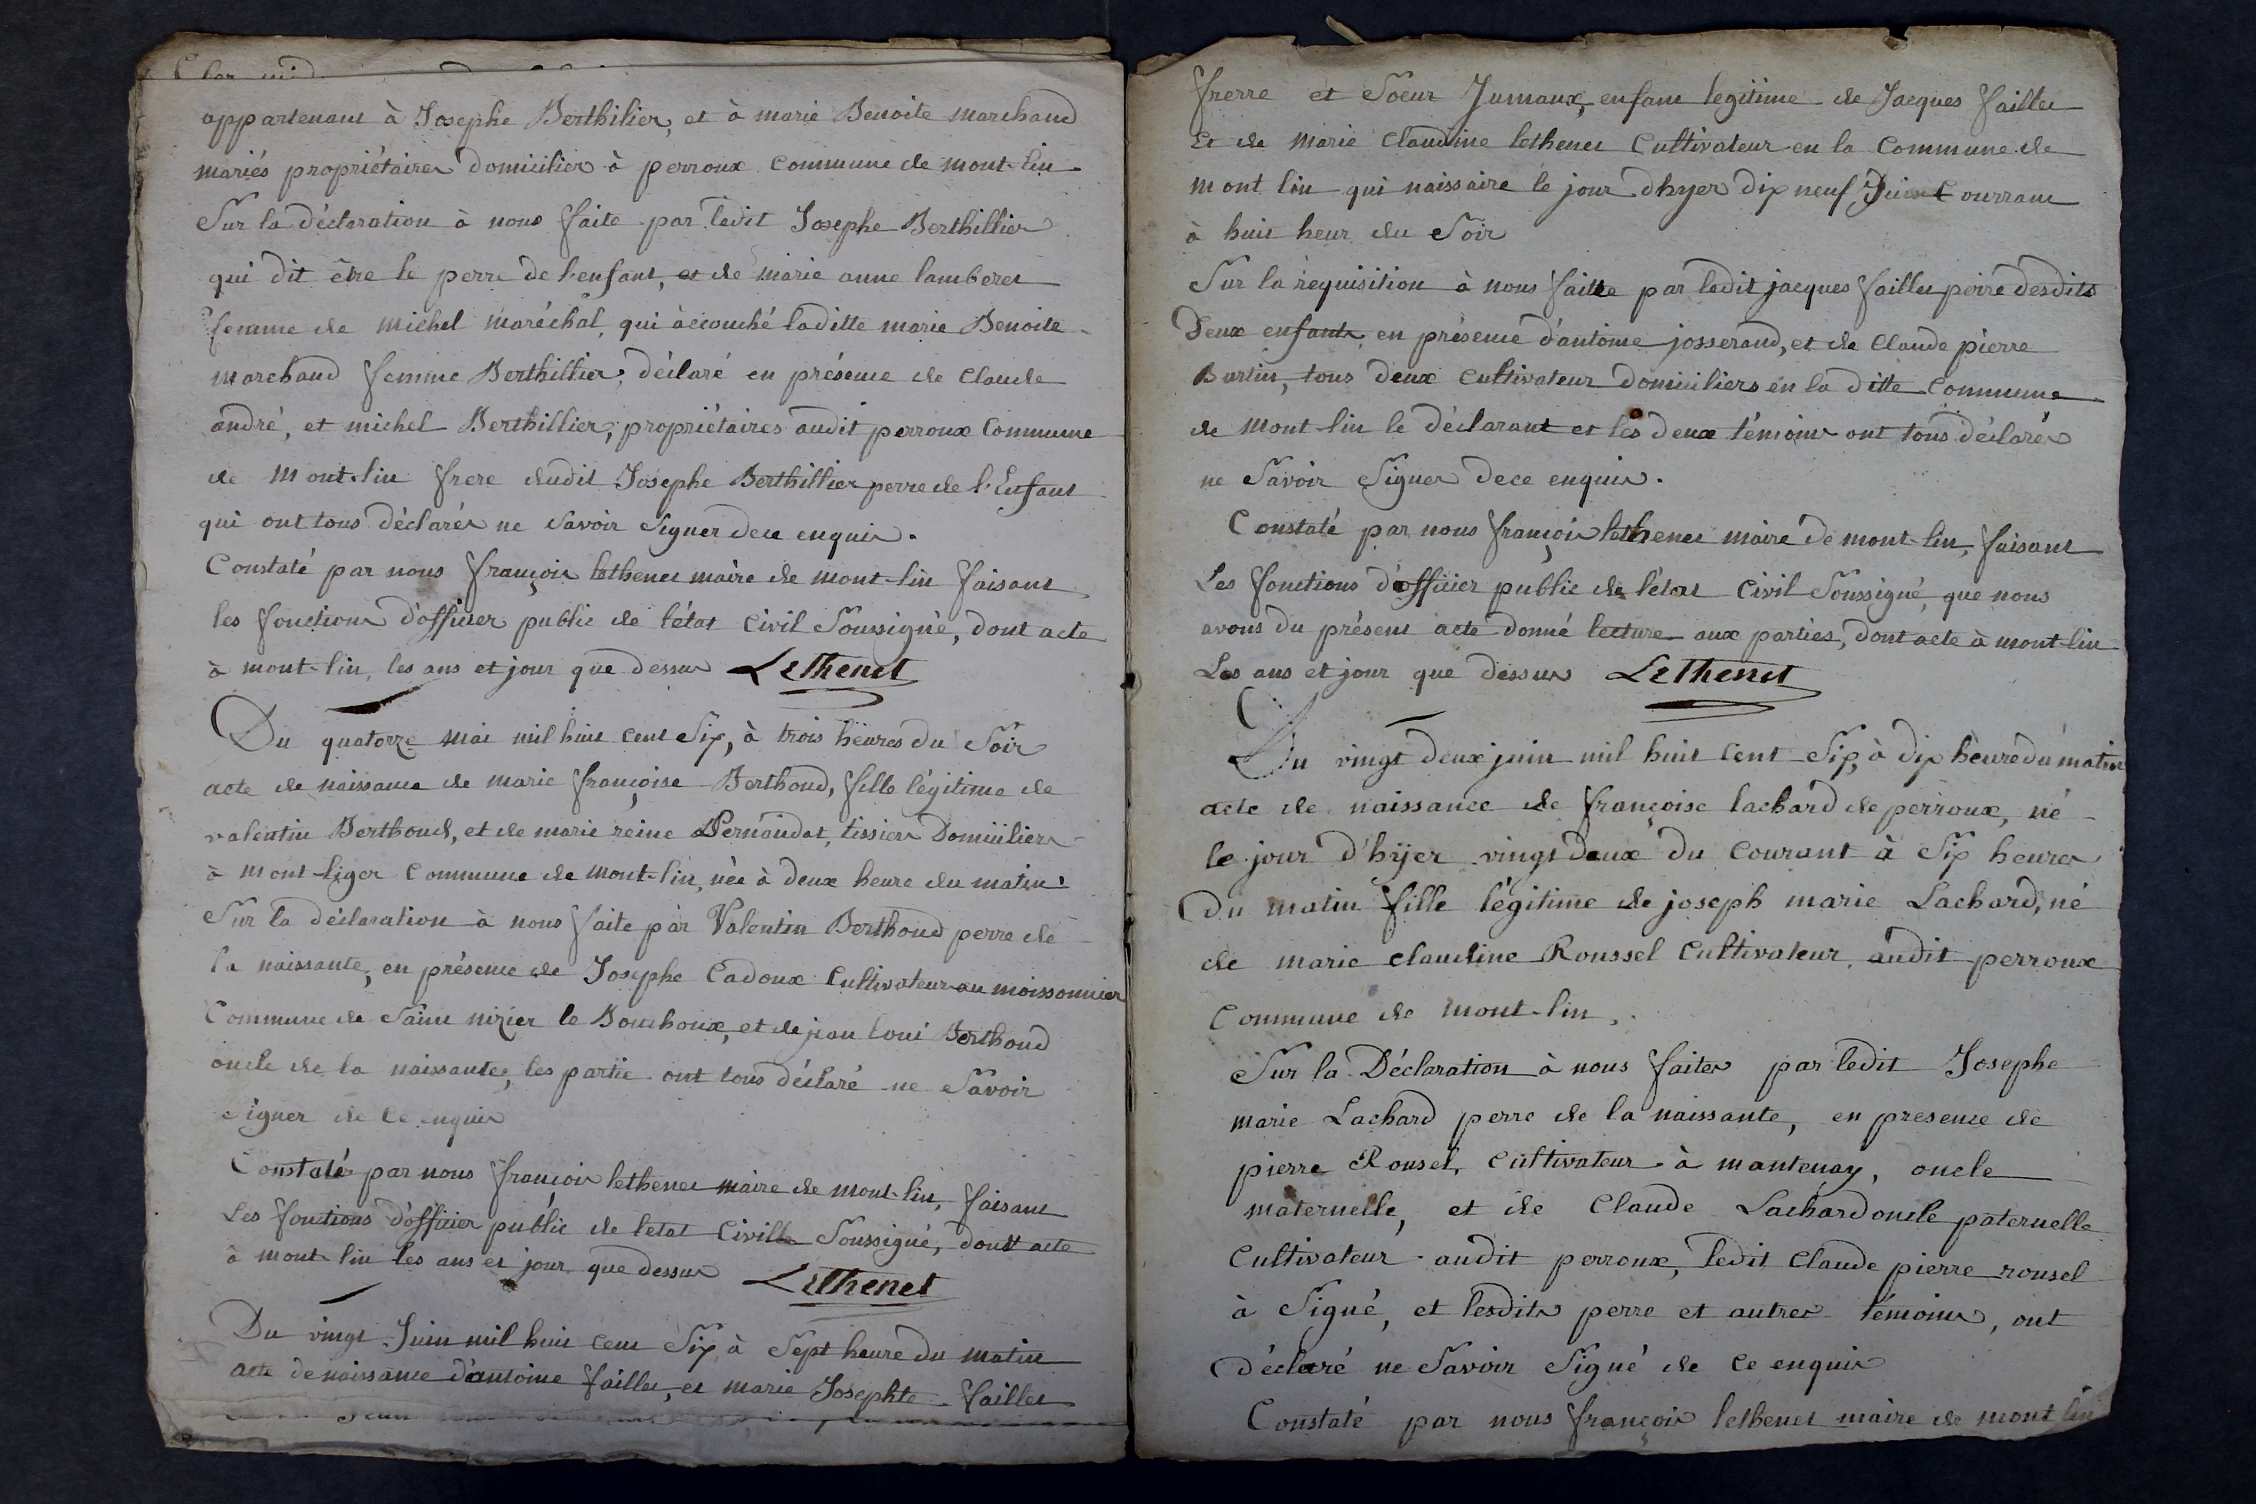 appartenant à Josephe Berthilier, et à marie Benoite marchand
mariés propriétaires domicilier à perroux commune de mont-lin
Sur la déclaration à nous faite par ledit Josephe Berthillier
qui dit être le perre de l'enfant, et de marie anne lamberet
femme de michel maréchal, qui àccouché laditte marie Benoite
marchand femme Berthillier, déclaré en présence de claude
andré, et michel Berthillier, propriétaires audit perroux commune
de mont-lin frere dudit Josephe Berthillier perre de l'Enfant
qui ont tous déclarés ne savoir signer dece enquis.
Constaté par nous françois lethenet maire de mont-lin faisant
les fonctions d'officier public de l'état civil Soussigné, dont acte
à mont-lin, les ans et jour que dessus Lethenet
Du quatorze mai mil huit cent Six, à trois heures du Soir
acte de naissance de marie françoise Berthoud, fille légitime de
valentin Berthoud, et de marie reine Pernaudat, tissier Domicilier
à mont-liger commune de mont-lin, née à deux heure du matin
Sur la déclaration à nous faite par Valentin Berthoud perre de
la naissante, en présence de Josephe Cadoux cultivateur au moissonnier
Commune de Saint nizier le Bouchoux, et de jean loui Berthoud
oncle de la naissante, les partie ont tous déclaré ne Savoir
signer de ce enquis
Constaté par nous françois lethenet maire de mont-lin, faisant
Les fonctions d'officier public de letat Civille Soussigné, dont acte
à mont-lin les ans et jour que dessus Lethenet
Du vingt Juin mil huit cent Six à Sept heure du matin
acte de naissance d'antoine faillet, et marie Josephte faillet
frerre et Soeur Jumaux, enfant legitime de Jacques faillet
Et de marie claudine lethenet Cultivateur en la Commune de
mont lin qui naissaire le jour d'hyer dix neuf Juin Courrant
à huit heur du Soir
Sur la requisition à nous faitte par ledit jacques faillet perre desdits
Deux enfants, en présence d'antoine josserand, et de claude pierre
Burtin, tous deux cultivateur domiciliers en la ditte commune
de mont-lin le déclarant et les deux témoins ont tous déclarés
ne Savoir Signer dece enquis.
Constaté par nous françois lethenet maire de mont-lin, faisant
Les fonctions d'officier public de l'état civil Soussigné, que nous
avons du présent acte donné lecture aux parties, dont acte à mont-lin
Les ans et jour que dessus Lethenet
Du vingt deux juin mil huit cent Six, à dix heure du matin
acte de naissance de françoise lachard de perroux, né
le jour d'hyer vingt deux du courant à Six heures
Du matin fille légitime de joseph marie Lachard, né
de marie claudine Roussel Cultivateur audit perroux
Commune de mont-lin.
Sur la Déclaration à nous faites par ledit Josephe
marie Lachard perre de la naissante, en presence de
pierre Rousel, Cultivateur à mantenay, oncle
maternelle, et de Claude Lachard oncle paternelle
Cultivateur audit perroux, ledit Claude pierre rousel
à Signé, et lesdits perre et autres témoins, ont
déclaré ne Savoir Signé de ce enquis
Constaté par nous françois lethenet maire de mont lin